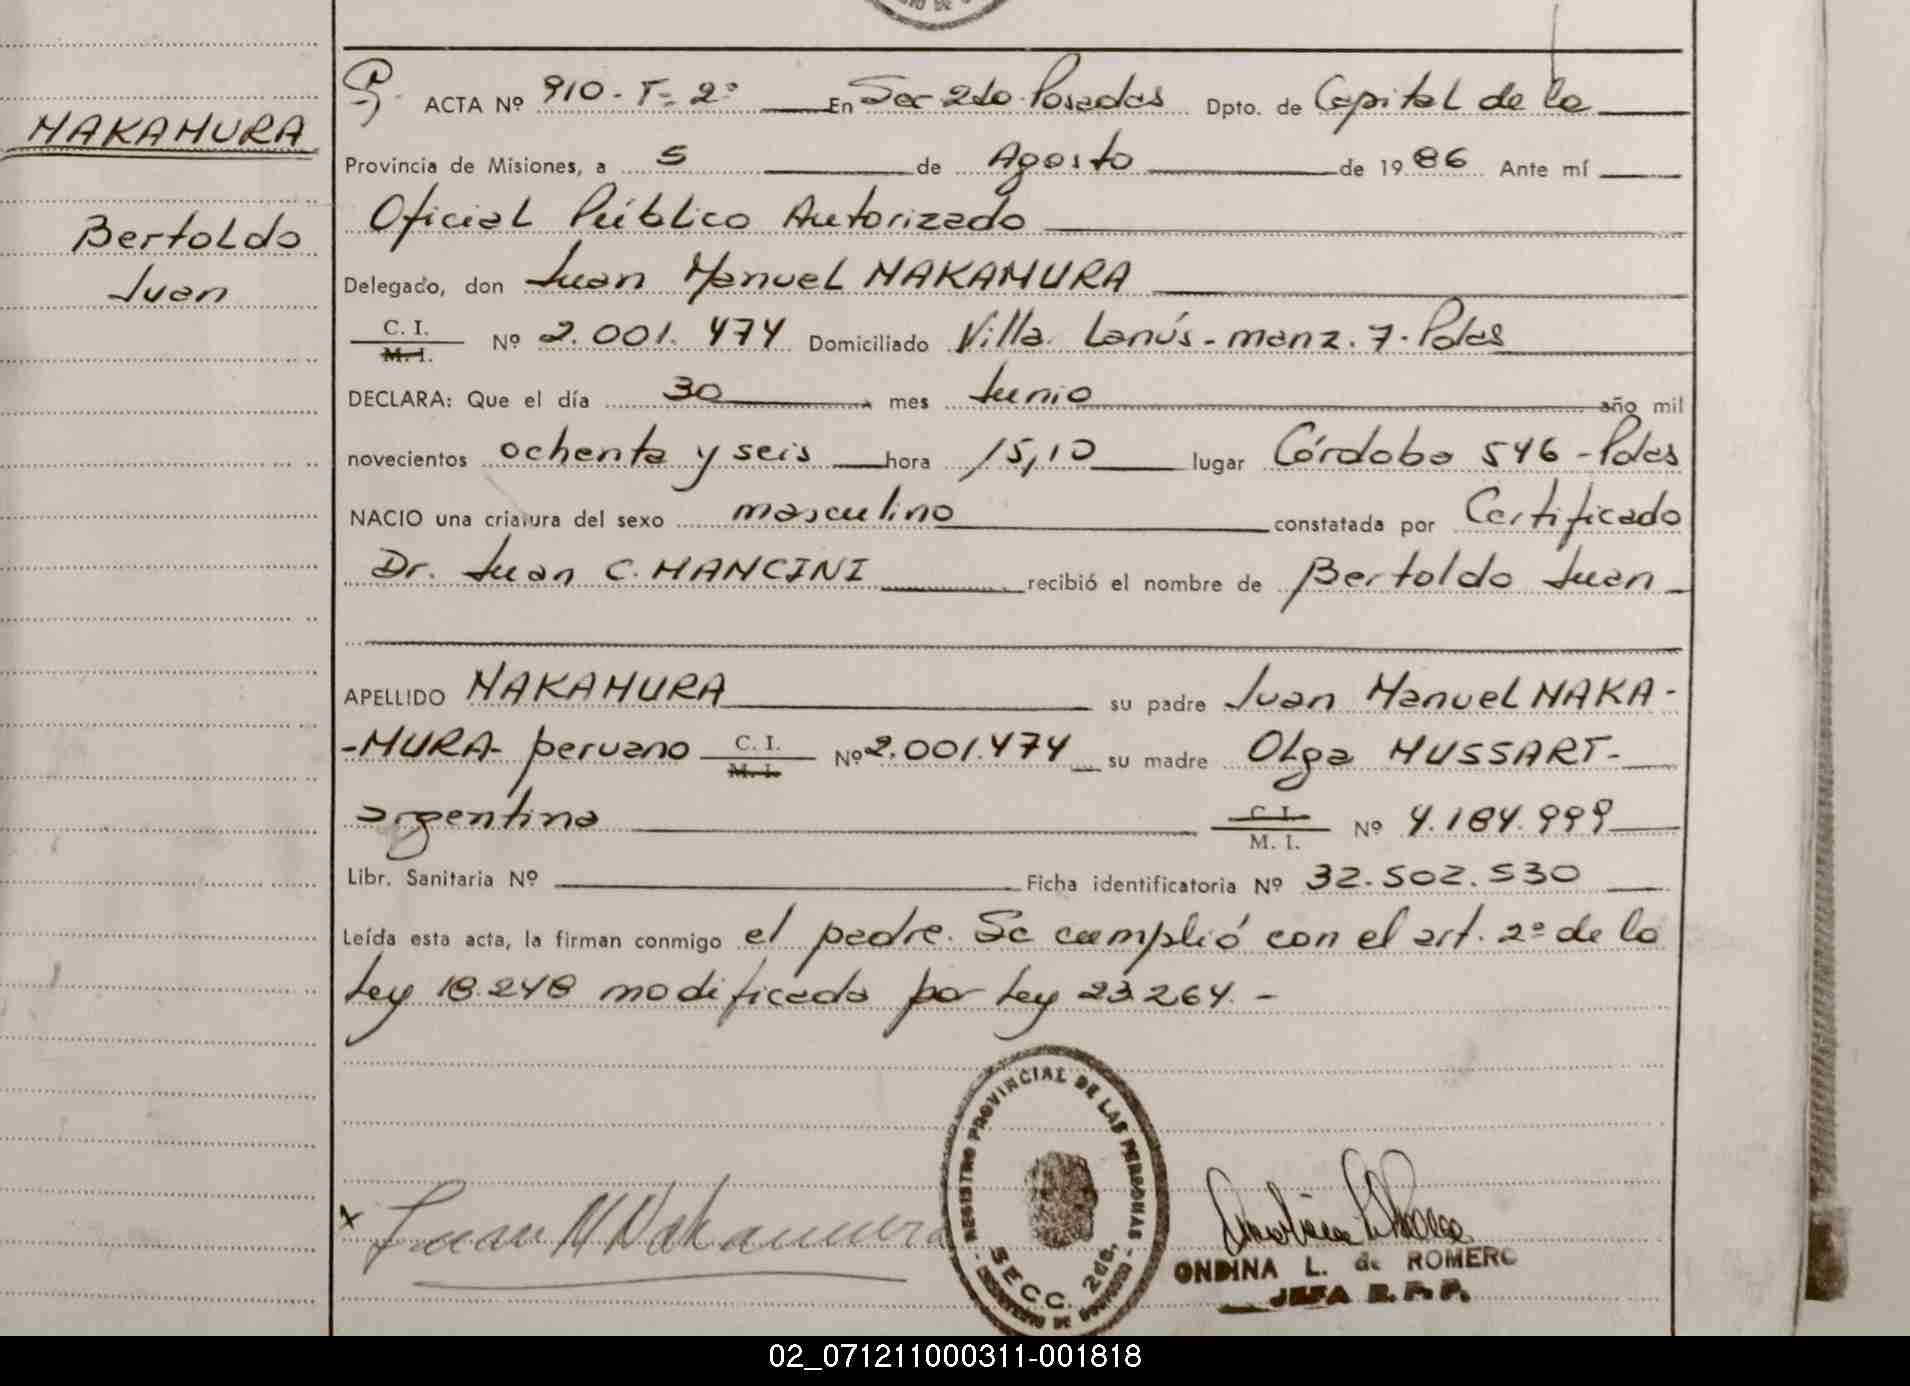 NAKAMURA
Bertoldo
Juan
ACTA Nº 910 - T = 2º En Sec 2do Posadas Dpto. de Capital de la
Provincia de Misiones, a 5 de Agosto de 1986 Ante mí
Oficial Público Autorizado
Delegado, don Juan Manuel NAKAMURA
C. I.
M. I. Nº 2.001.474 Domiciliado Villa Lanús - manz. 7 - Pdas
DECLARA: Que el día 30 mes Junio año mil
novecientos ochenta y seis hora 15,10 lugar Córdoba 546 - Pdas
NACIO una criatura del sexo masculino constatada por Certificado
Dr. Juan C. MANCINI recibió el nombre de Bertoldo Juan
APELLIDO NAKAMURA su padre Juan Manuel NAKA-
-MURA- peruano C. I. M. I. Nº 2.001.474 su madre Olga MUSSART-
argentina C. I. M. I. Nº 4.184.999
Libr. Sanitaria Nº Ficha identificatoria Nº 32.502.530
Leída esta acta, la firman conmigo el padre. Se cumplió con el art. 2º de la
Ley 18.248 modificada por Ley 23.264. -
REGISTRO PROVINCIAL DE LAS PERSONAS
SECC. 2da.
x Juan M Nakamura
ONDINA L. de ROMERO
JEFA R. P. P.
02_071211000311-001818